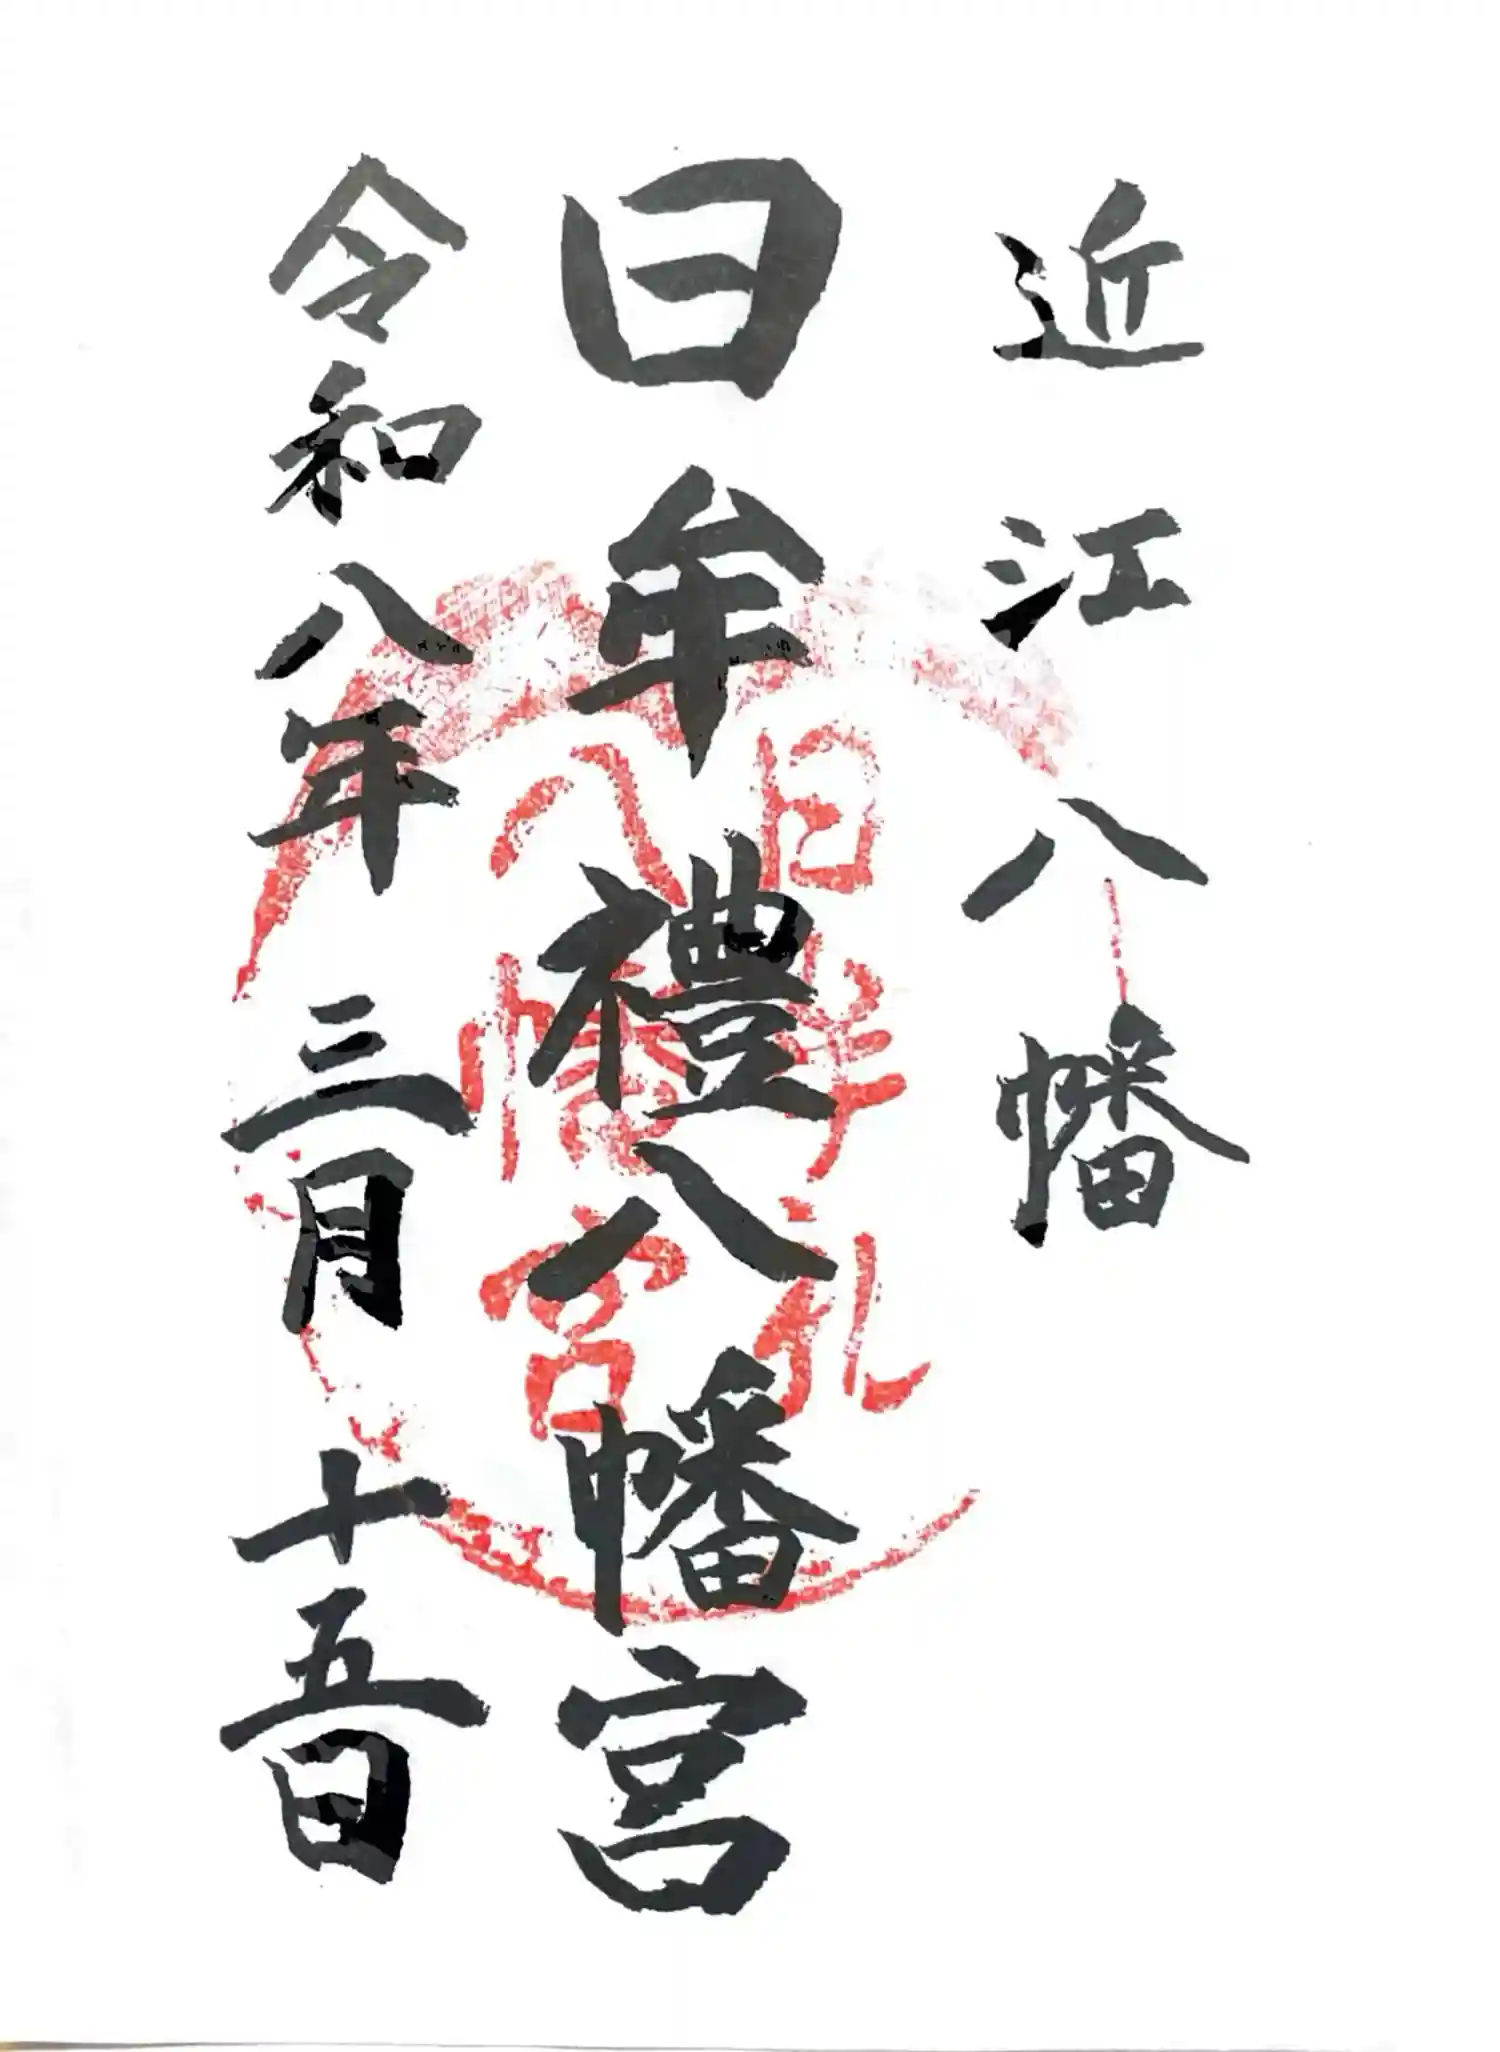 近江八幡
日牟禮八幡宮
令和八年三月十五日
日牟礼
八幡宮